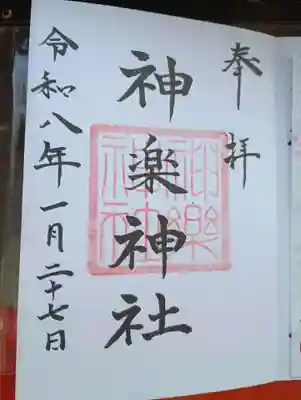 奉拝
神楽神社
神楽神社
令和八年一月二十七日